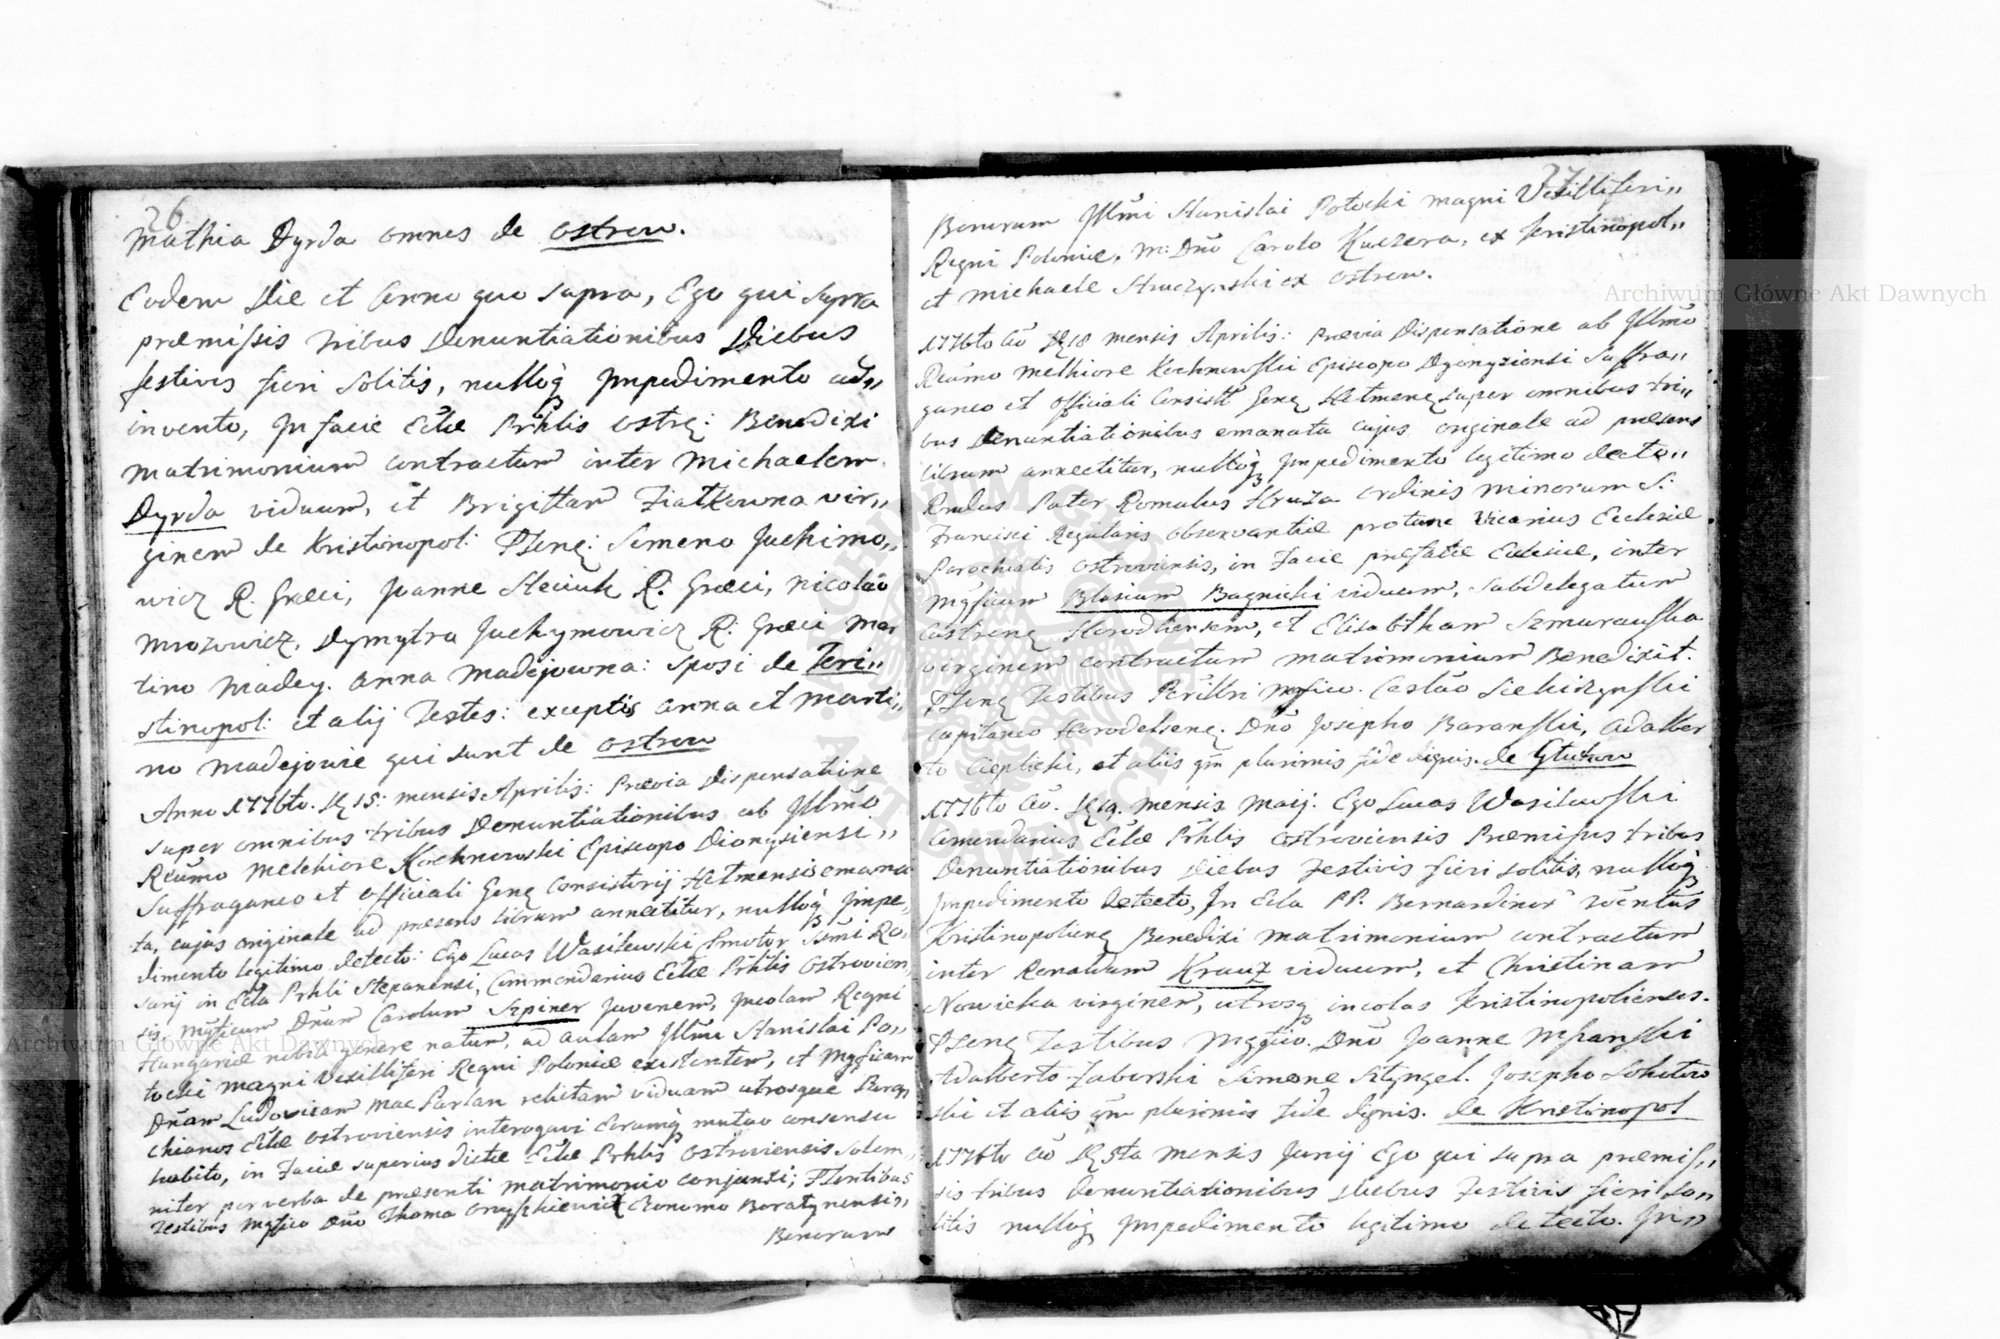 26
Mathia Dyrda omnes de Ostrow.
Eodem Die et Anno quo supra, Ego qui supra
præmissis tribus Denuntiationibus Diebus
festivis fieri solitis, nulloq̀ Impedimento ad„
invento, In facie Ecłæ Pr̃hlis Ostrę: Benedixi
Matrimonium contractum inter Michaelem
Dyrda viduum, et Brigittam Ziatkowna vir„
ginem de Kristinopol: Pſenę: Simeno Jachimo„
wicz R. Græci, Joanne Steciuk R. Græci, Nicolao
Mrozowicz, Dymytro Jachymowicz R: Græci Mar
tino Madey. Anna Madejowna: Sposi de Kri„
stinopol: et alij Testes: exceptis Anna et Marti„
no Madejowie qui sunt de Ostrow
Anno 1776to. Dę 15: mensis Aprilis: Prævia Dispensatione
super omnibus tribus Denuntiationibus ab Jllm̃o
Rẽumo Melchiore Kochnowski Episcopo Dionysiensi„
Suffraganeo et Officiali Genę Consistorij Hełmensis emana
ta, cujus originale ad præsens librum annectitur, nulloq̀ Impe„
dimento legitimo detecto: Ego Lucas Wasilewski Pmotor Ssmi Ro„
sarij in Ecła Prhli Stepanensi, Commendarius Ecłæ Pr̃hlis Ostrovien„
sis Mgficum Dñum Carolum Szpiner Juvenem, Incolam Regni
Hungariæ nobili genere natum, ad aulam Jllm̃i Stanislai Po„
tocki Magni Vexilliferi Regni Poloniæ existentem, et Mgficam
Dñam Ludovicam Mac Parlan relictam viduam utrosque Paro„
chianos Ecłæ Ostroviensis interogavi Eorumq̀ mutuo consensu
habito, in Facie superius dictæ Ecłæ Prhlis Ostroviensis Solem„
niter per verba de præsenti Matrimonio conjunxi; Pſentibus
Testibus Mgfico Dño Thoma Onyszkiewicz Œconomo Boratynensis„
Bonorum
27
Bonorum Jllm̃i Stanislai Potocki Magni Vexilliferi„
Regni Poloniæ, M: Dño Carolo Kuczera, ex Kristinopol„
et Michaele Struczynski ex Ostrow.
1776to Aõ Dę 18 mensis Aprilis: Prævia Dispensatione ab Jllm̃o
Rẽumo Melhiore Kochnowski Episcopo Dyonyziensi Suffra„
ganeo et Officiali Consistł Genę Hełmenę super omnibus tri„
bus Denuntiationibus emanata cujus originale ad præsens
librum annectitur, nulloq̀ Impedimento legitimo detecto„
Rndus Pater Romulus Hruza Ordinis Minorum S:
Francisci Regularis observantiæ protunc Vicarius Ecclesiæ
Parochialis Ostroviensis, in Facie præfatæ Eclesiæ, inter
Mgficum Blasium Bagnicki viduum, Subdelegatum
Castrenę Horodlensem, et Elisabtham Szmurawska
virginem contractum matrimonium Benedixit.
Pſenę Testibus Perillri Mgfico. Castão Siekirzynski
Capitaneo Horodelsenę. Dño Josepho Baranski, Adalber
to Cieplicki, et aliis qm̃ plurimis fide dignis. de Gluchow
1776to Aõ. Dę 19. mensis Maij. Ego Lucas Wasilewski
Comendarius Ecłæ Pr̃hlis Ostroviensis Præmissus tribus
Denuntiationibus diebus Festivis fieri solitis, nulloq̀
Impedimento detecto, In Ecła PP. Bernardinor̃ Wentus
Kristinopolienę Benedixi matrimonium contractum
inter Renaldum Krauz viduum, et Christinam
Nowicka virginem, utrosq incolas Kristinopolienses.
Pſenę Testibus Mgfico. Dño Joanne Mſzanski
Adalberto Zaborski Simeone Sztyngel. Josepho Sokołow
ski et aliis qm̃ plurimis fide dignis. de Kristinopol
1776to Aõ Dę 5ta mensis Junij Ego qui supra præmiſ„
sis tribus denuntiationibus diebus Festivis fieri so„
litis nulloq̀ Impedimento legitimo detecto. In„
Archiwum Główne Akt Dawnych
Archiwum Główne Akt Dawnych